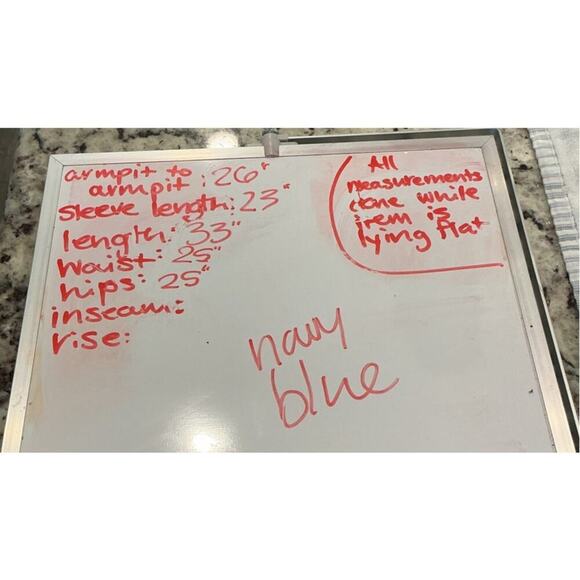 armpit to
armpit: 26"
sleeve length: 23"
length: 33"
waist: 25"
hips: 25"
inseam:
rise:
All
measurements
done while
item is
lying flat
navy
blue